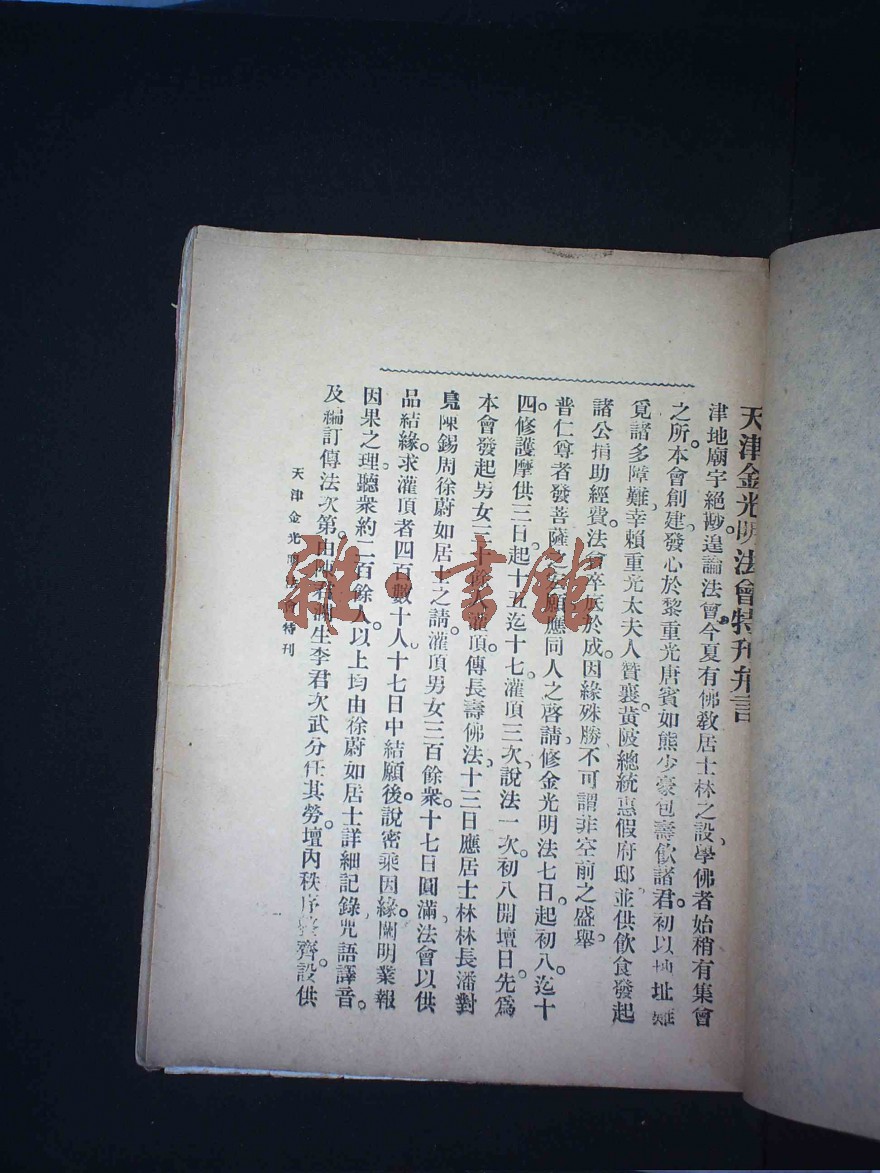 天津金光明法會特刊弁言
津地廟宇絕尠遑論法會今夏有佛敎居士林之設學佛者始稍有集會
之所本會創建發心於黎重光唐賓如熊少豪包壽飲諸君初以地址難
覓諸多障難幸賴重光太夫人贊襄黃陂總統惠假府邸並供飲食發起
諸公捐助經費法會卒底於成因緣殊勝不可謂非空前之盛舉
普仁尊者發菩薩之願應同人之啓請修金光明法七日起初八迄十
四修護摩供三日起十五迄十七灌頂三次說法一次初八開壇日先爲
本會發起男女三十餘人灌頂傳長壽佛法十三日應居士林林長潘對
鳧陳錫周徐蔚如居士之請灌頂男女三百餘衆十七日圓滿法會以供
品結緣求灌頂者四百數十人十七日中結願後說密乘因緣闡明業報
因果之理聽衆約二百餘人以上均由徐蔚如居士詳細記錄咒語譯音
及編訂傳法次第由陳君生李君次武分任其勞壇內秩序齊設供
天津金光明法會特刊
雜·書館